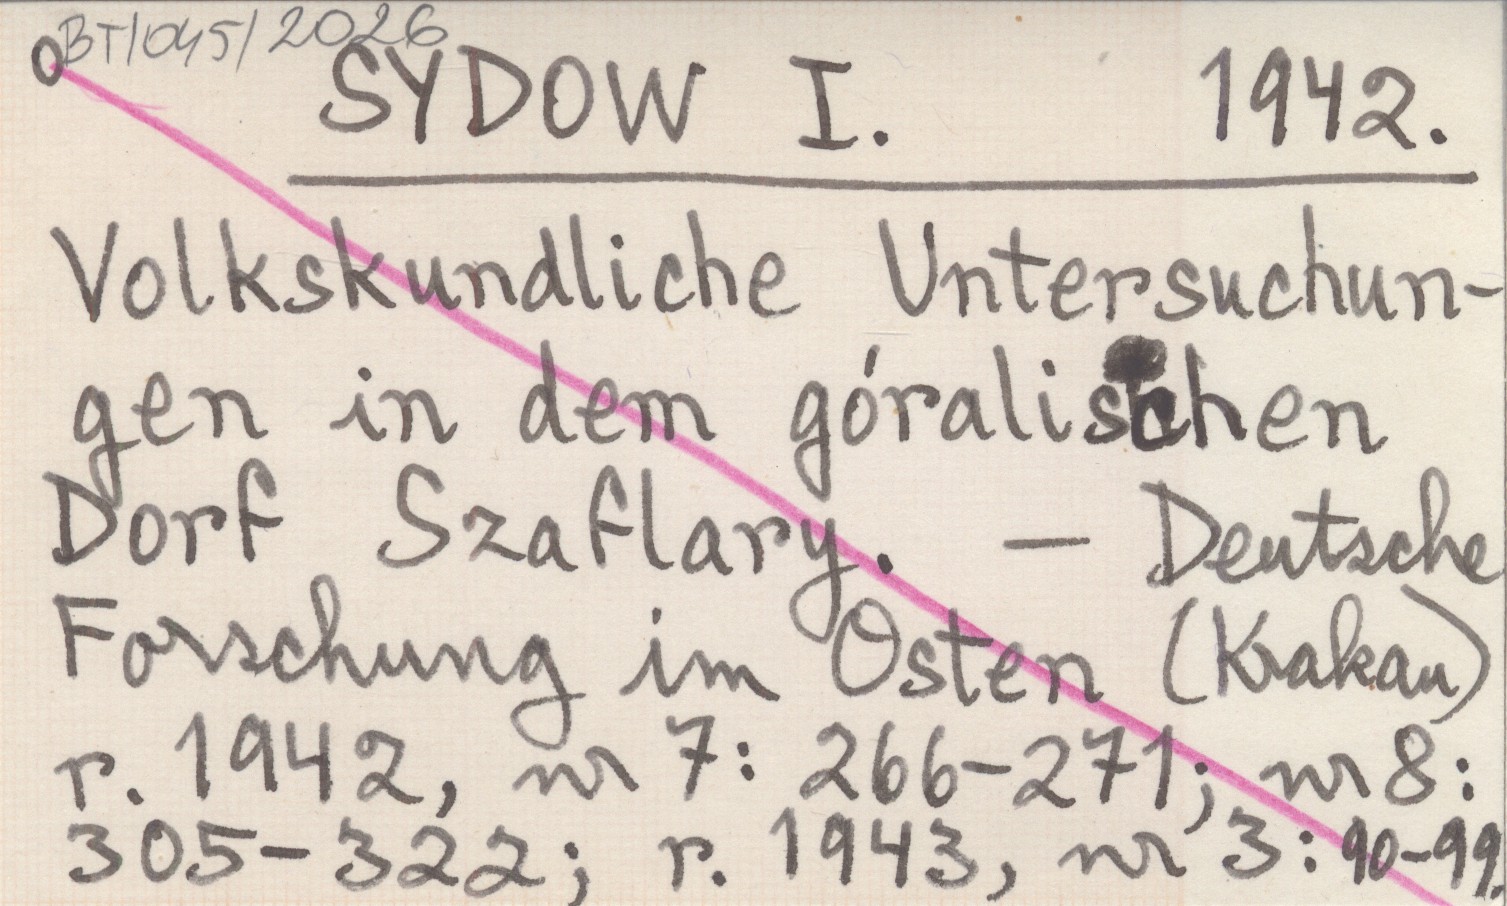 BT/045/2026
SYDOW I. 1942.
Volkskundliche Untersuchun-
gen in dem góralischen
Dorf Szaflary. — Deutsche
Forschung im Osten (Krakau)
r. 1942, nr 7: 266-271; nr 8:
305-322; r. 1943, nr 3: 90-99.